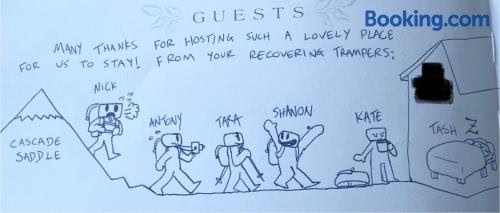 GUESTS
Booking.com
MANY THANKS FOR HOSTING SUCH A LOVELY PLACE
FOR US TO STAY! FROM YOUR RECOVERING TRAMPERS:
NICK
ANTONY
TARA
SHANON
KATE
TASH
Z
CASCADE
SADDLE